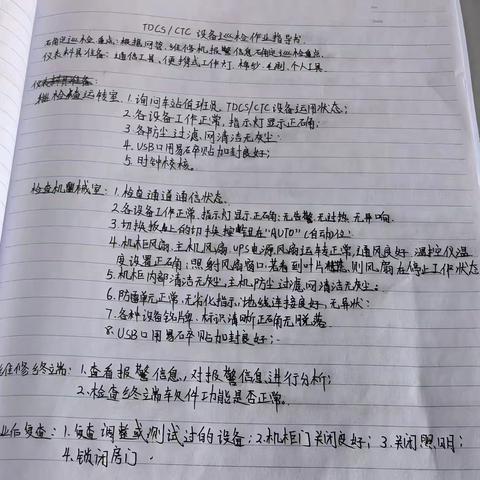 TDCS/CTC 设备巡检作业指导书
确定巡检重点:根据网管、维修机报警信息确定巡检重点.
仪表料具准备:通信工具、便携式工作灯、棉纱、毛刷、个人工具.
检查运转室:1.询问车站值班员 TDCS/CTC设备运用状态;
2.各设备工作正常,指示灯显示正确;
3.各防尘过滤网清洁无灰尘;
4.USB口用易碎贴加封良好;
5.时钟校核。
检查机械室:1.检查通道通信状态.
2.各设备工作正常、指示灯显示正确;无告警.无过热.无异响.
3.切换板上的切换按钮在"AUTO"(自动位)
4.机柜风扇.主机风扇 UPS电源风扇运转正常,通风良好.温控仪温
度设置正确;照射风扇窗口,若看到叶片,则风扇在停止工作状态
5.机柜内部清洁无灰尘,主机防尘过滤网清洁无灰尘;
6.防雷单元正常,无劣化指示,地线连接良好.无异状;
7.各种设备铭牌.标识清晰正确无脱落.
8.USB口用易碎贴加封良好;
维修终端:1.查看报警信息,对报警信息进行分析;
2.检查终端软件功能是否正常。
业后复查:1.复查调整或测试过的设备;2.机柜门关闭良好;3.关闭照明;
4.锁闭房门.